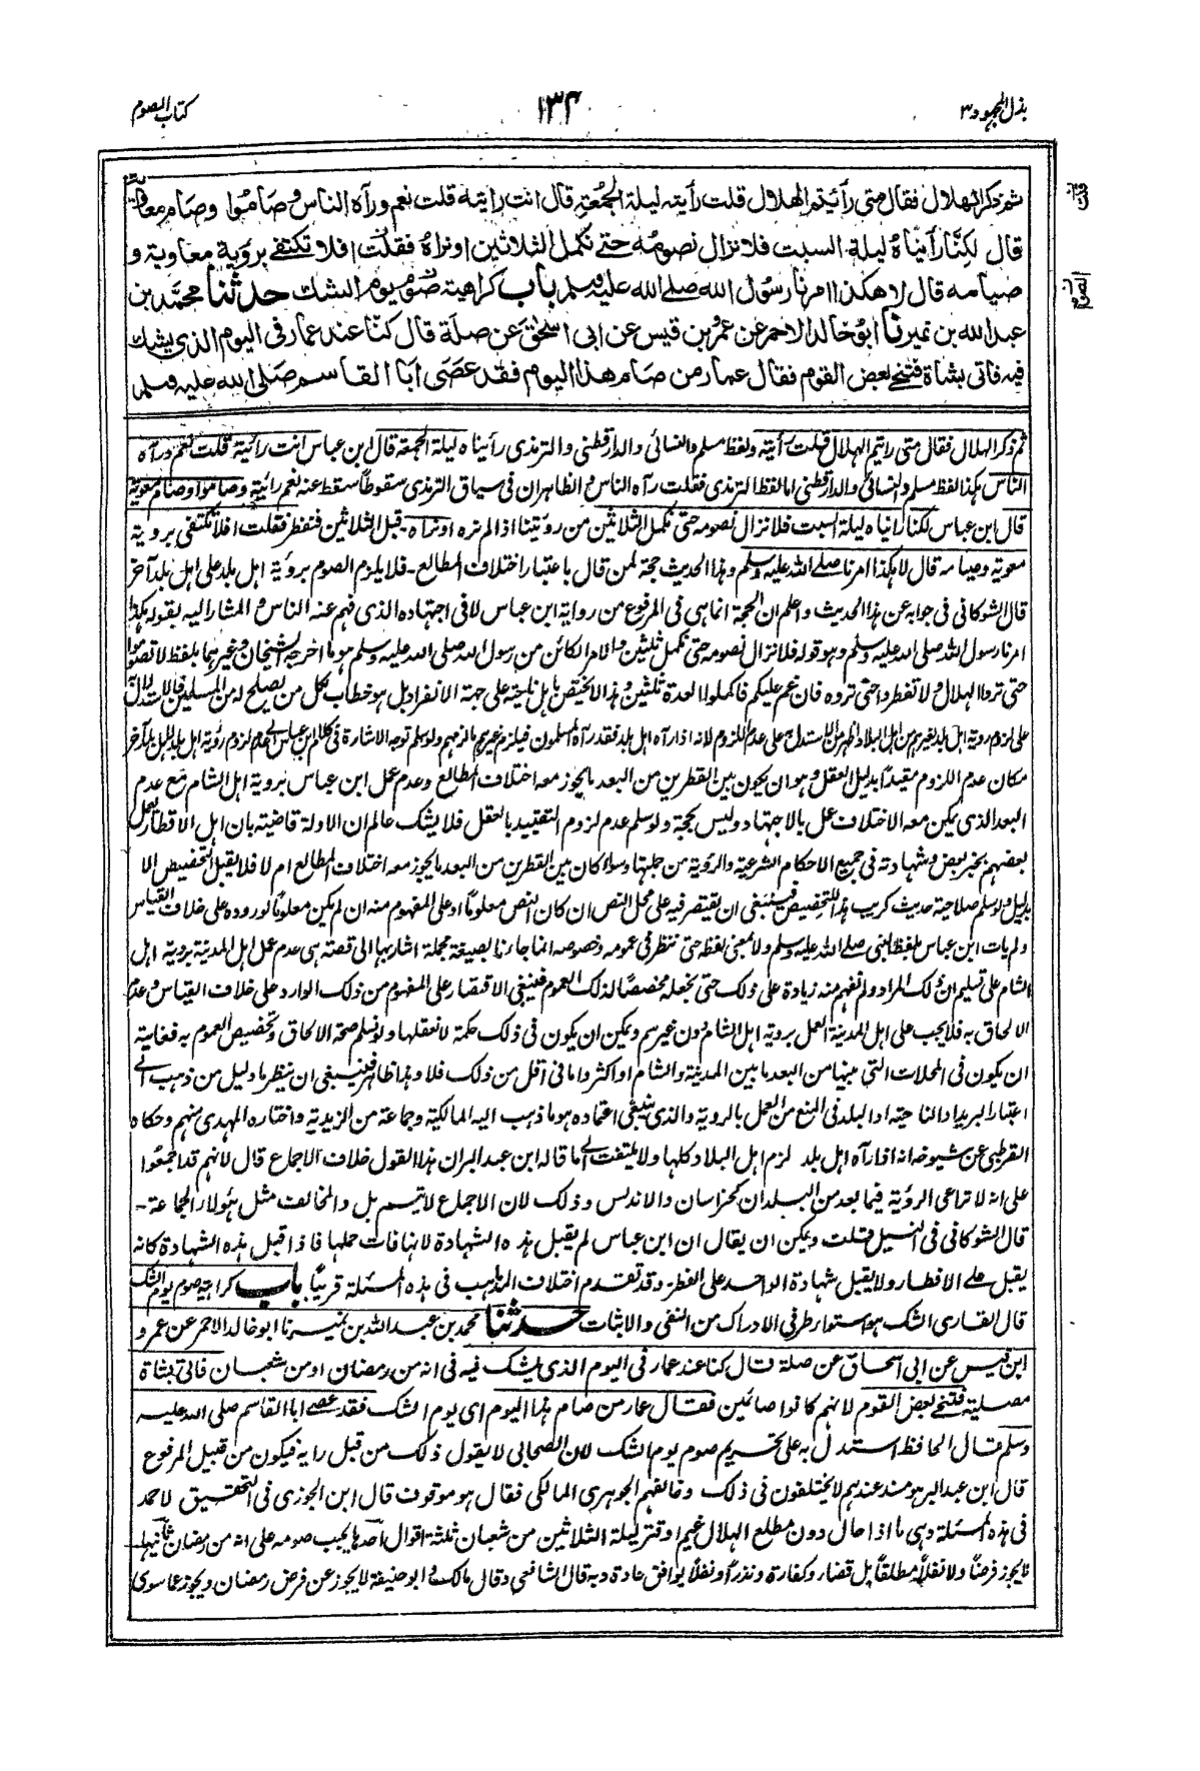 بذل المجهود ٣
١٣٤
كتاب الصوم
ثم ذكر الهلال فقال متى رأيتم الهلال قلت رأيته ليلة الجمعة قال انت رايته قلت نعم ورآه الناس وصاموا وصام معاوية
قال لكنا رأيناه ليلة السبت فلا نزال نصومه حتى نكمل الثلاثين او نراه فقلت افلا تكتفي برؤية معاوية و
صيامه قال لا هكذا امرنا رسول الله صلى الله عليه وسلم باب كراهية صوم يوم الشك حدثنا محمد بن
عبد الله بن نمير نا ابو خالد الاحمر عن عمرو بن قيس عن ابى اسحق عن صلة قال كنا عند عمار فى اليوم الذى يشك
فيه فاتى بشاة فتنحى بعض القوم فقال عمار من صام هذا اليوم فقد عصى ابا القاسم صلى الله عليه وسلم
ثم ذكر الهلال فقال متى رايتم الهلال قلت رأيته ولفظ مسلم والنسائى والدارقطنى والترمذى رأيناه ليلة الجمعة قال ابن عباس انت رأيته قلت نعم ورآه
الناس هكذا لفظ مسلم والنسائى والدارقطنى اما لفظ الترمذى فقلت رآه الناس والظاهر ان فى سياق الترمذى سقوطاً سقط عنه نعم رأيته وصاموا وصام معوية
قال ابن عباس لكنا رأيناه ليلة السبت فلا نزال نصومه حتى نكمل الثلاثين من رؤيتنا اذا لم نره او نراه - قبل الثلاثين فنفطر فقلت افلا تكتفى بروية
معوية وصيامه قال لا هكذا امرنا صلى الله عليه وسلم وهذا الحديث حجة لمن قال باعتبار اختلاف المطالع - فلا يلزم الصوم برؤية اهل بلد على اهل بلد آخر
قال الشوكانى فى جوابه عن هذا الحديث واعلم ان الحجة انما هى فى المرفوع من رواية ابن عباس لا فى اجتهاده الذى فهم عنه الناس والمشار اليه بقوله هكذا
امرنا رسول الله صلى الله عليه وسلم وهو قوله فلا نزال نصومه حتى نكمل ثلثين والامر الكائن من رسول الله صلى الله عليه وسلم هو ما اخرجه الشيخان وغيرهما بلفظ لا تصوموا
حتى تروا الهلال ولا تفطروا حتى تروه فان غم عليكم فاكملوا العدة ثلثين وهذا لا يختص باهل ناحية على جهة الانفراد بل هو خطاب لكل من يصلح له من المسلمين فالاستدلال به
على لزوم روية اهل بلد لغيرهم من اهل البلاد اظهر من الاستدلال به على عدم اللزوم لانه اذا رآه اهل بلد فقد رآه المسلمون فيلزم غيرهم ما لزمهم ولو سلم توجه الاشارة فى كلام ابن عباس الى عدم لزوم رؤية اهل بلد لاهل بلد آخر
مكان عدم اللزوم مقيداً بدليل العقل وهو ان يكون بين القطرين من البعد ما يجوز معه اختلاف المطالع وعدم عمل ابن عباس بروية اهل الشام مع عدم
البعد الذى يمكن معه الاختلاف عمل بالاجتهاد وليس بحجة ولو سلم عدم لزوم التقييد بالعقل فلا يشك عالم ان الادلة قاضية بان اهل الاقطار يعمل
بعضهم بخبر بعض وشهادته فى جميع الاحكام الشرعية والرؤية من جملتها وسواء كان بين القطرين من البعد ما يجوز معه اختلاف المطالع ام لا فلا يقبل التخصيص الا
بدليل ولو سلم صلاحية حديث كريب هذا للتخصيص فينبغى ان يقتصر فيه على محل النص ان كان النص معلوماً او على المفهوم منه ان لم يكن معلوماً لوروده على خلاف القياس
ولم يات ابن عباس بلفظ النبى صلى الله عليه وسلم ولا بمعنى لفظه حتى ننظر فى عمومه وخصوصه انما جاءنا بصيغة مجملة اشار بها الى قصة هى عدم عمل اهل المدينة بروية اهل
الشام على تسليم ان ذلك المراد ولم نفهم منه زيادة على ذلك حتى نجعله مخصصاً لذلك العموم فينبغى الاقتصار على المفهوم من ذلك الوارد على خلاف القياس وعدم
الالحاق به فلا يجب على اهل المدينة العمل بروية اهل الشام دون غيرهم ويمكن ان يكون فى ذلك حكمة لا نعقلها ولو نسلم صحة الالحاق وتخصيص العموم به فغاية
ان يكون فى المحلات التى بينها من البعد ما بين المدينة والشام او اكثر واما فى أقل من ذلك فلا وهذا ظاهر فينبغى ان ينظر ما دليل من ذهب الى
اعتبار البريد او الناحية او البلد فى المنع من العمل بالروية والذى ينبغى اعتماده هو ما ذهب اليه المالكية وجماعة من الزيدية واختاره المهدى منهم وحكاه
القرطبى عن شيوخه انه اذا رآه اهل بلد لزم اهل البلاد كلها ولا يلتفت الى ما قاله ابن عبد البر ان هذا القول خلاف الاجماع قال لانهم قد اجمعوا
على انه لا تراعى الرؤية فيما بعد من البلدان كخراسان والاندلس وذلك لان الاجماع لا يتم بل والمخالف مثل هؤلاء الجماعة -
قال الشوكانى فى النيل قلت ويمكن ان يقال ان ابن عباس لم يقبل هذه الشهادة لانها فات حملها فاذا قبل هذه الشهادة كانه
يقبل على الافطار ولا يقبل شهادة الواحد على الفطر - وقد تقدم اختلاف المذاهب فى هذه المسئلة قريباً باب كراهية صوم يوم الشك
قال القارى الشك هو استواء طرفى الادراك من النفى والاثبات حدثنا محمد بن عبد الله بن نمير نا ابو خالد الاحمر عن عمرو
ابن قيس عن ابى اسحاق عن صلة قال كنا عند عمار فى اليوم الذى يشك فيه فى انه من رمضان او من شعبان فاتى بشاة
مصلية فتنحى بعض القوم لانهم كانوا صائمين فقال عمار من صام هذا اليوم اى يوم الشك فقد عصى ابا القاسم صلى الله عليه
وسلم قال الحافظ استدل به على تحريم صوم يوم الشك لان الصحابى لا يقول ذلك من قبل رايه فيكون من قبيل المرفوع
قال ابن عبد البر هو مسند عندهم لا يختلفون فى ذلك وخالفهم الجوهرى المالكى فقال هو موقوف قال ابن الجوزى فى التحقيق لاحمد
فى هذه المسئلة وهى ما اذا حال دون مطلع الهلال غيم او قتر ليلة الثلاثين من شعبان ثلثة اقوال احدها يجب صومه على انه من رمضان ثانيها
لا يجوز فرضاً ولا نفلاً مطلقاً بل قضاء وكفارة ونذراً ونفلاً يوافق عادة وبه قال الشافعى وقال مالك وابو حنيفة لا يجوز عن فرض رمضان ويجوز عما سوى